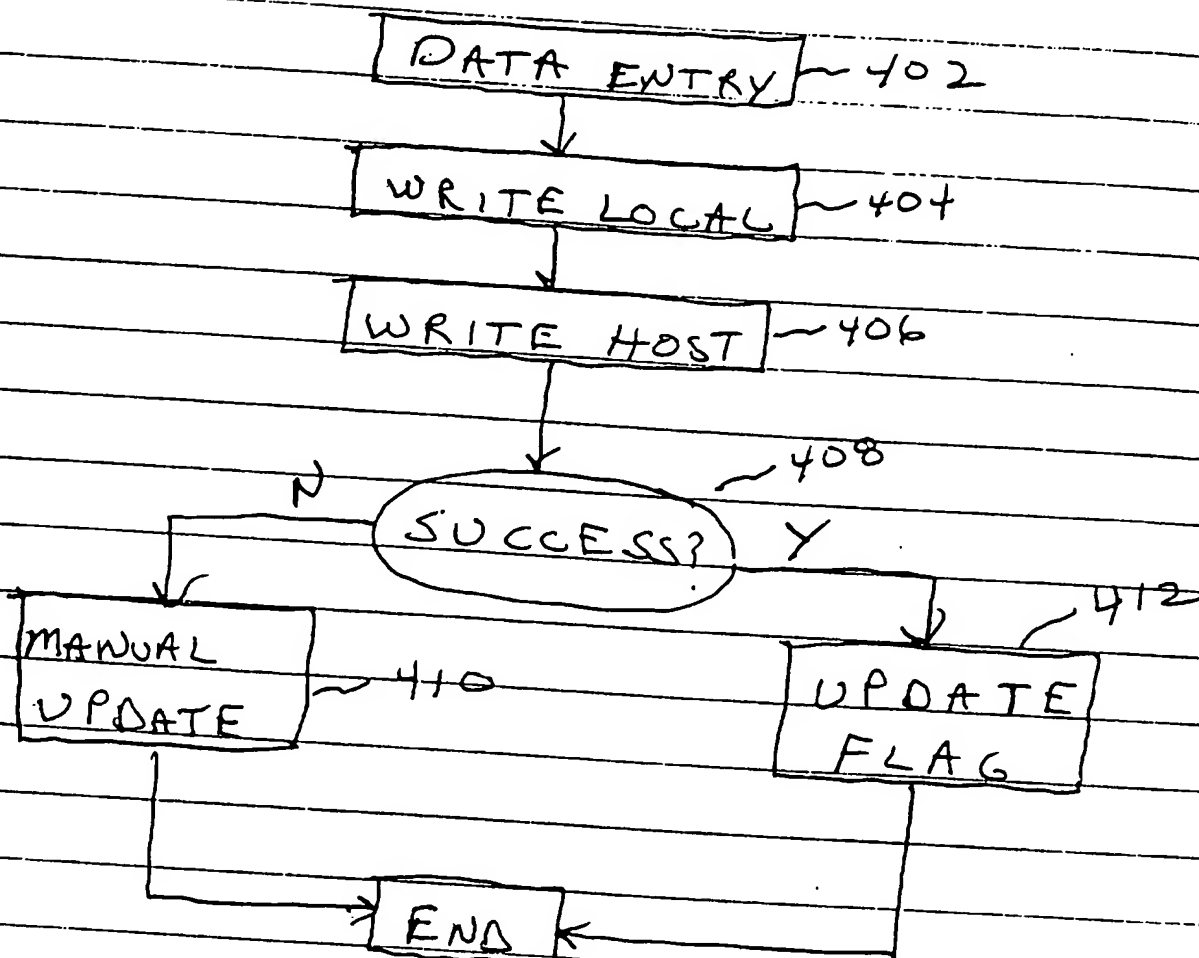 DATA ENTRY 402
WRITE LOCAL 404
WRITE HOST 406
408
N SUCCESS? Y
412
MANUAL
UPDATE
410
UPDATE
FLAG
END